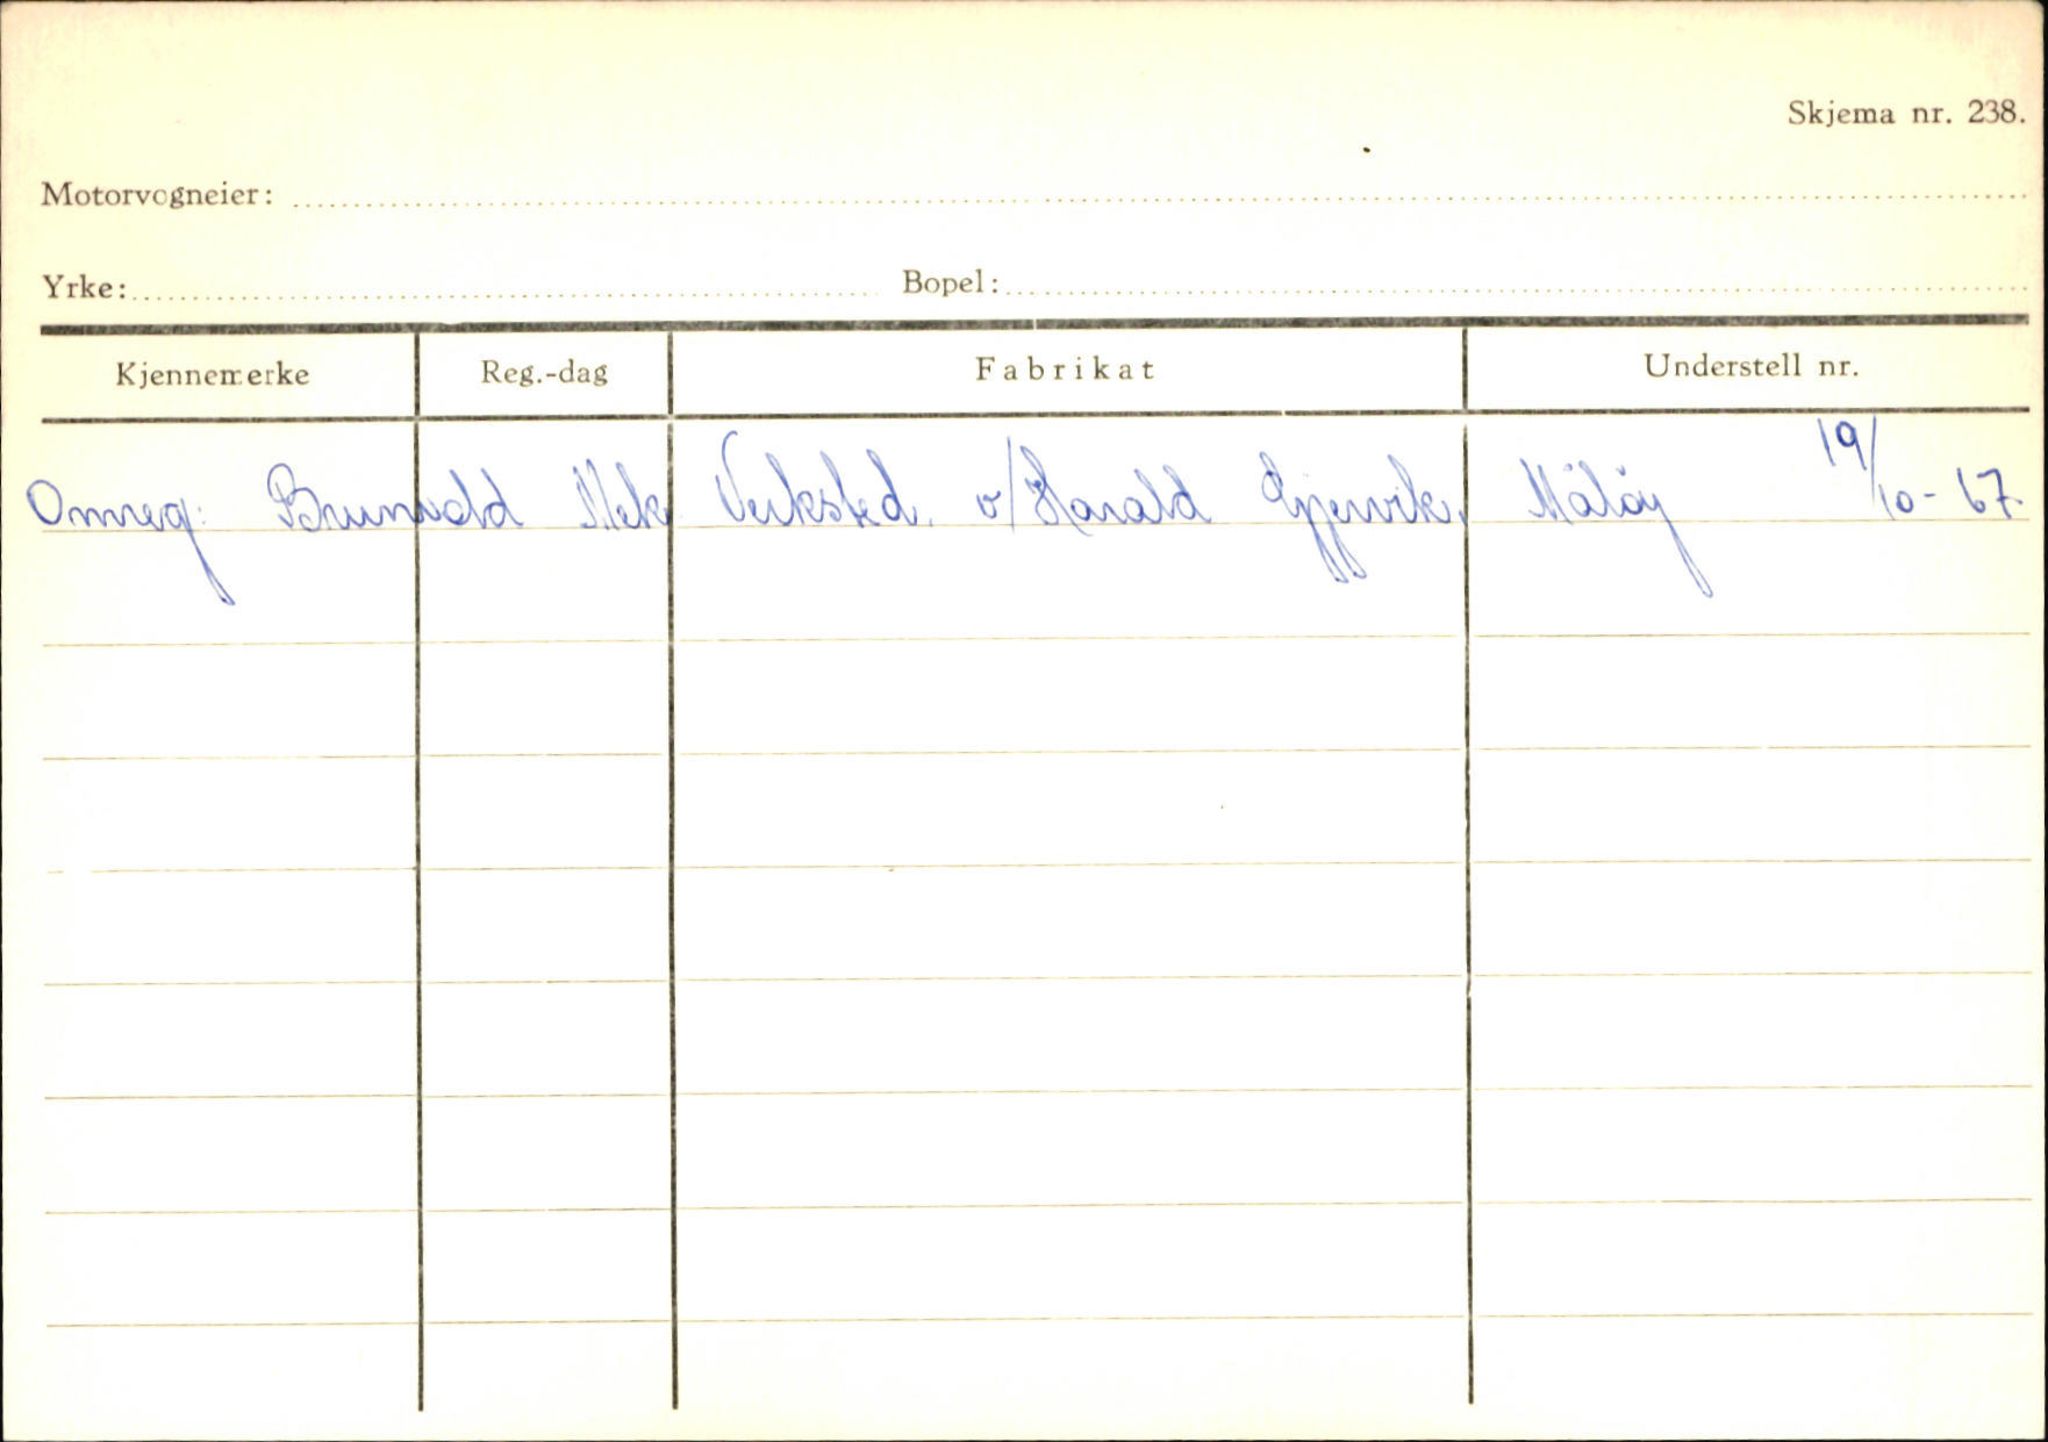 Skjema nr. 238.
Motorvogneier:
Yrke: Bopel:
Kjennemerke Reg.-dag Fabrikat Understell nr.
Omreg: Brunvold Mek Verksted. v/Harald Gjervik, Måløy 19/10-67.